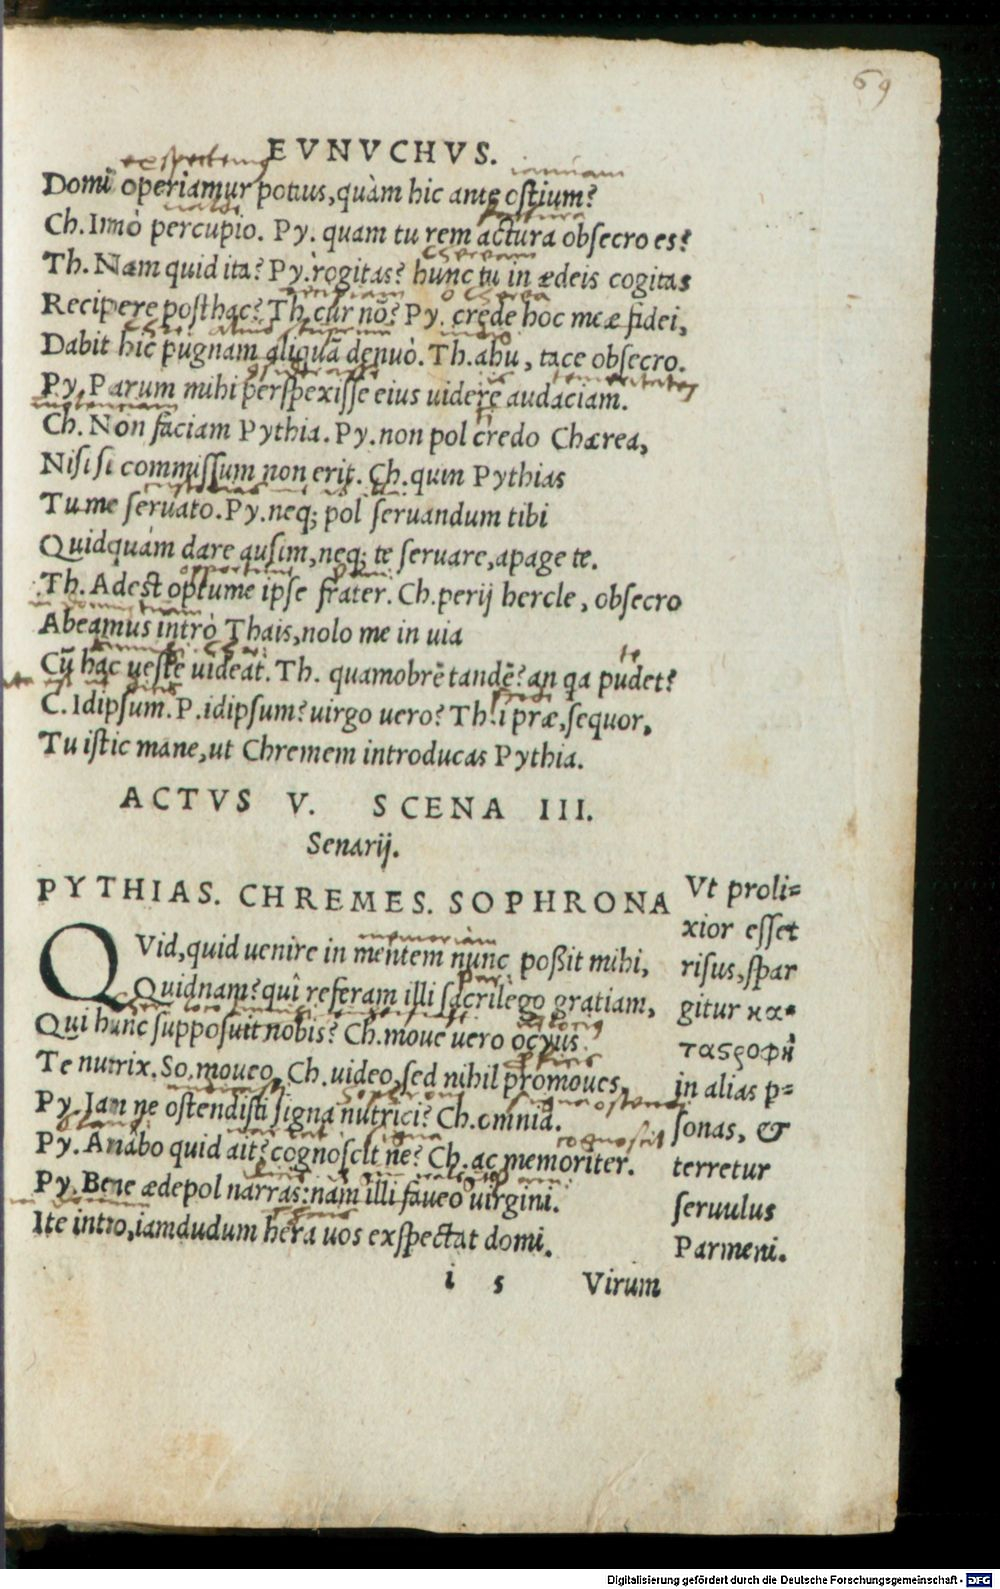 69
EVNVCHVS.
exspectemus
ianuam
Domi operiamur potius, quàm hic ante ostium?
ualde
factura
Ch. Immò percupio. Py. quam tu rem actura obsecro es?
Chaeream
Th. Nam quid ita? Py. rogitas? hunc tu in ædeis cogitas
recipiam o Cherea
Recipere posthac? Th. cur nō? Py. crede hoc meæ fidei,
Dabit hic pugnam aliquã denuò. Th. ahu, tace obsecro.
temeritatem
Py. Parum mihi perspexisse eius uidere audaciam.
Ch. Non faciam Pythia. Py. non pol credo Chærea,
Nisi si commissum non erit. Ch. quin Pythias
Tu me seruato. Py. neq; pol seruandum tibi
Quidquàm dare ausim, neq; te seruare, apage te.
Th. Adest optume ipse frater. Ch. perij hercle, obsecro
Abeamus intrò Thais, nolo me in uia
te
Cū hac ueste uideat. Th. quamobrē tandē? an qa pudet?
C. Idipsum. P. idipsum? uirgo uero? Th. i præ, sequor,
Tu istic mane, ut Chremem introducas Pythia.
ACTVS V. SCENA III.
Senarij.
PYTHIAS. CHREMES. SOPHRONA
memoriam
QVid, quid uenire in mentem nunc poßit mihi,
Quidnam? quî referam illi sacrilego gratiam,
Qui hunc supposuit nobis? Ch. moue uero ocyus
Te nutrix. So. moueo, Ch. uideo, sed nihil promoues,
Py. Jam ne ostendisti signa nutrici? Ch. omnia.
signa
cognoscit
Py. Amabo quid ait? cognoscit ne? Ch. ac memoriter.
Py. Bene ædepol narras: nam illi faueo uirgini.
Ite intro, iamdudum hera uos exspectat domi.
Vt proli=
xior esset
risus, spar
gitur κα=
ταςροφὴ
in alias p=
sonas, &
terretur
seruulus
Parmeni.
i 5 Virum
Digitalisierung gefördert durch die Deutsche Forschungsgemeinschaft - DFG